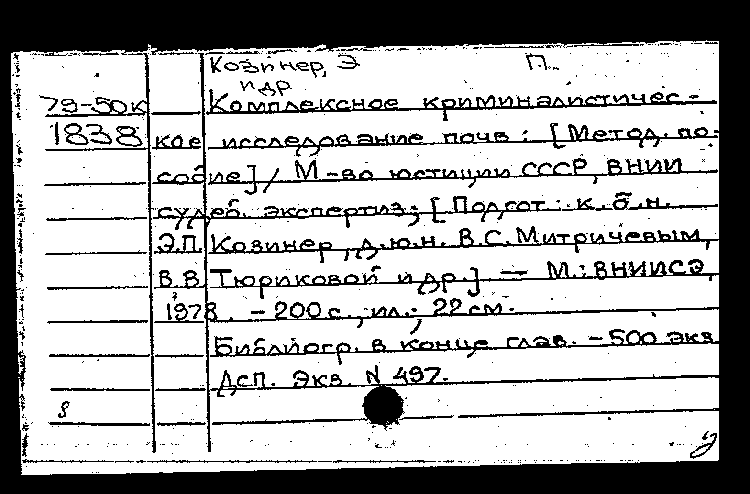 Козинер, Э П.
и др
79-50к Комплексное криминалистичес-
1838 кое исследование почв : [Метод. по-
собие] / М-во юстиции СССР, ВНИИ
судеб. экспертиз ; [Подгот : к.б.н.
Э.П. Козинер, д.ю.н. В.С. Митричевым,
В.В. Тюриковой и др.] — М.: ВНИИСЭ,
1978. - 200 с., ил.; 22 см.
Библиогр. в конце глав. - 500 экз
Дсп. Экз. N 497.
8